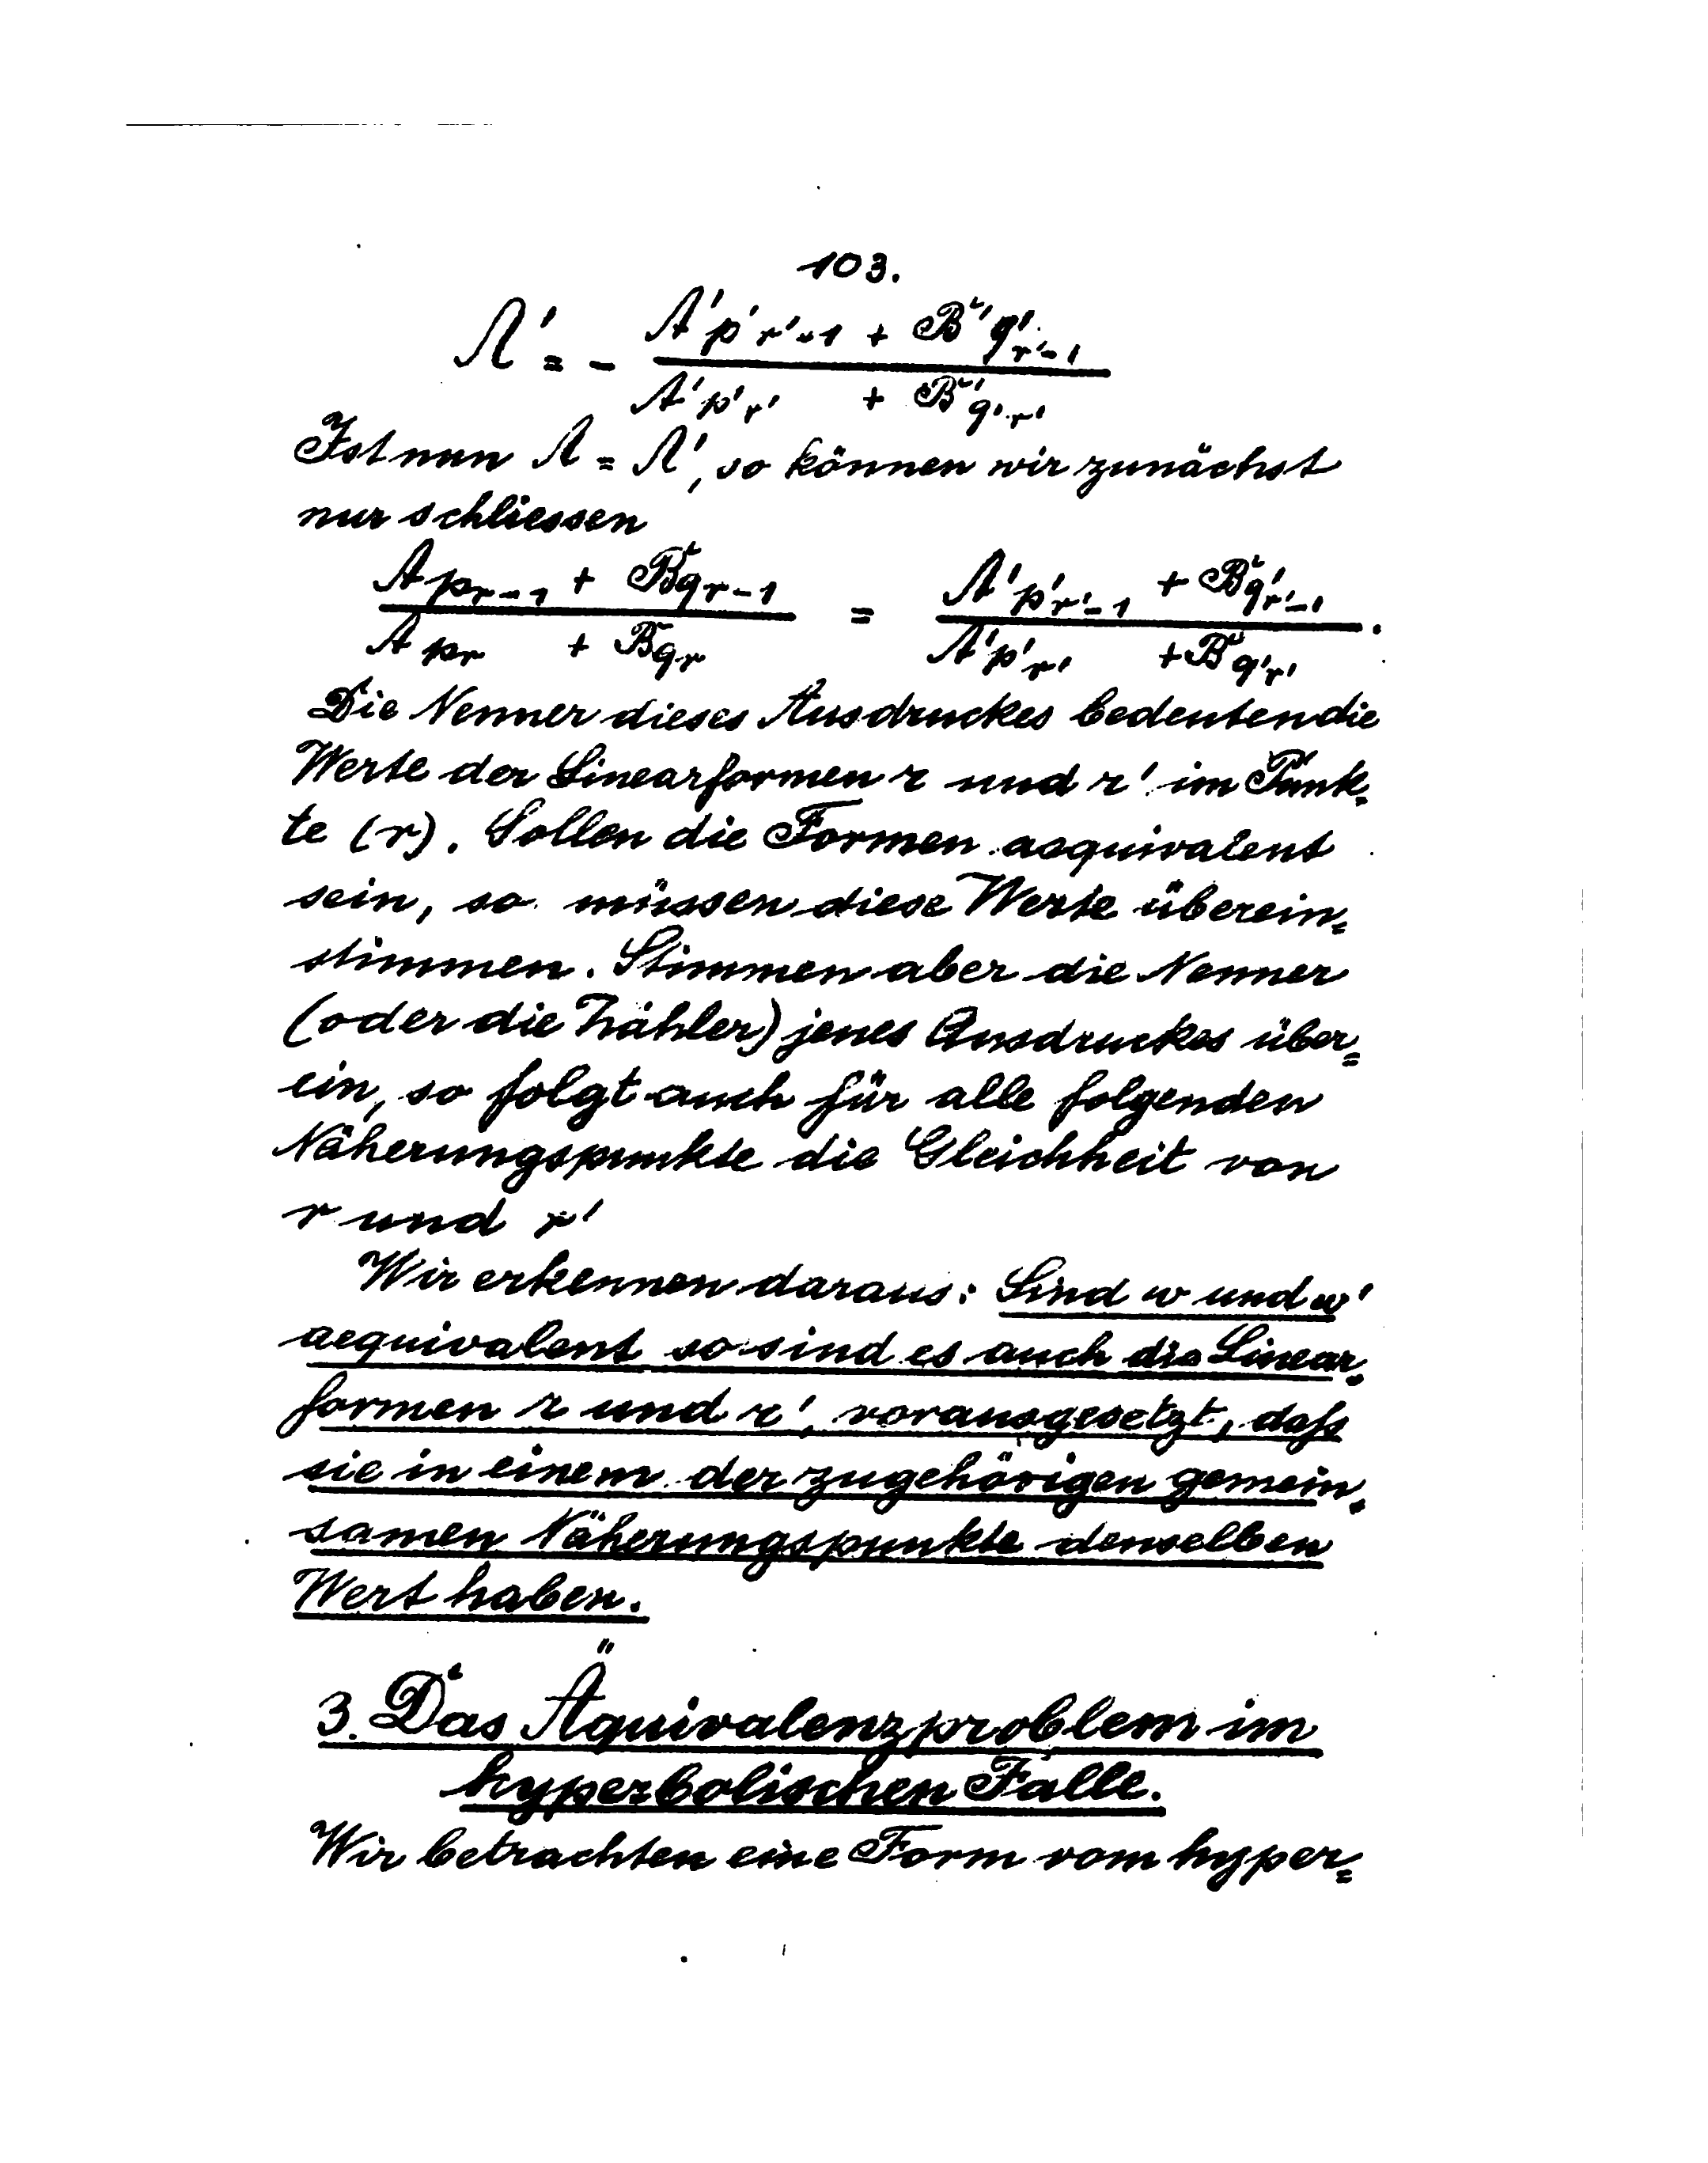 103.
Λ' = - (A'p'r'-1 + B'q'r'-1) / (A'p'r' + B'q'r')
Ist nun Λ = Λ', so können wir zunächst
nur schliessen
(A pr-1 + Bqr-1) / (A pr + Bqr) = (A'p'r'-1 + Bq'r'-1) / (A'p'r' + Bq'r').
Die Nenner dieses Ausdruckes bedeuten die
Werte der Linearformen r und r' im Punk-
te (r). Sollen die Formen aequivalent
sein, so müssen diese Werte überein=
stimmen. Stimmen aber die Nenner
(oder die Zähler) jenes Ausdruckes über=
ein, so folgt auch für alle folgenden
Näherungspunkte die Gleichheit von
r und r'
Wir erkennen daraus: Sind w und w'
aequivalent so sind es auch die Linear-
formen r und r', vorausgesetzt, daß
sie in einem der zugehörigen gemein-
samen Näherungspunkte denselben
Wert haben.
3. Das Äquivalenzproblem im
hyperbolischen Falle.
Wir betrachten eine Form vom hyper=